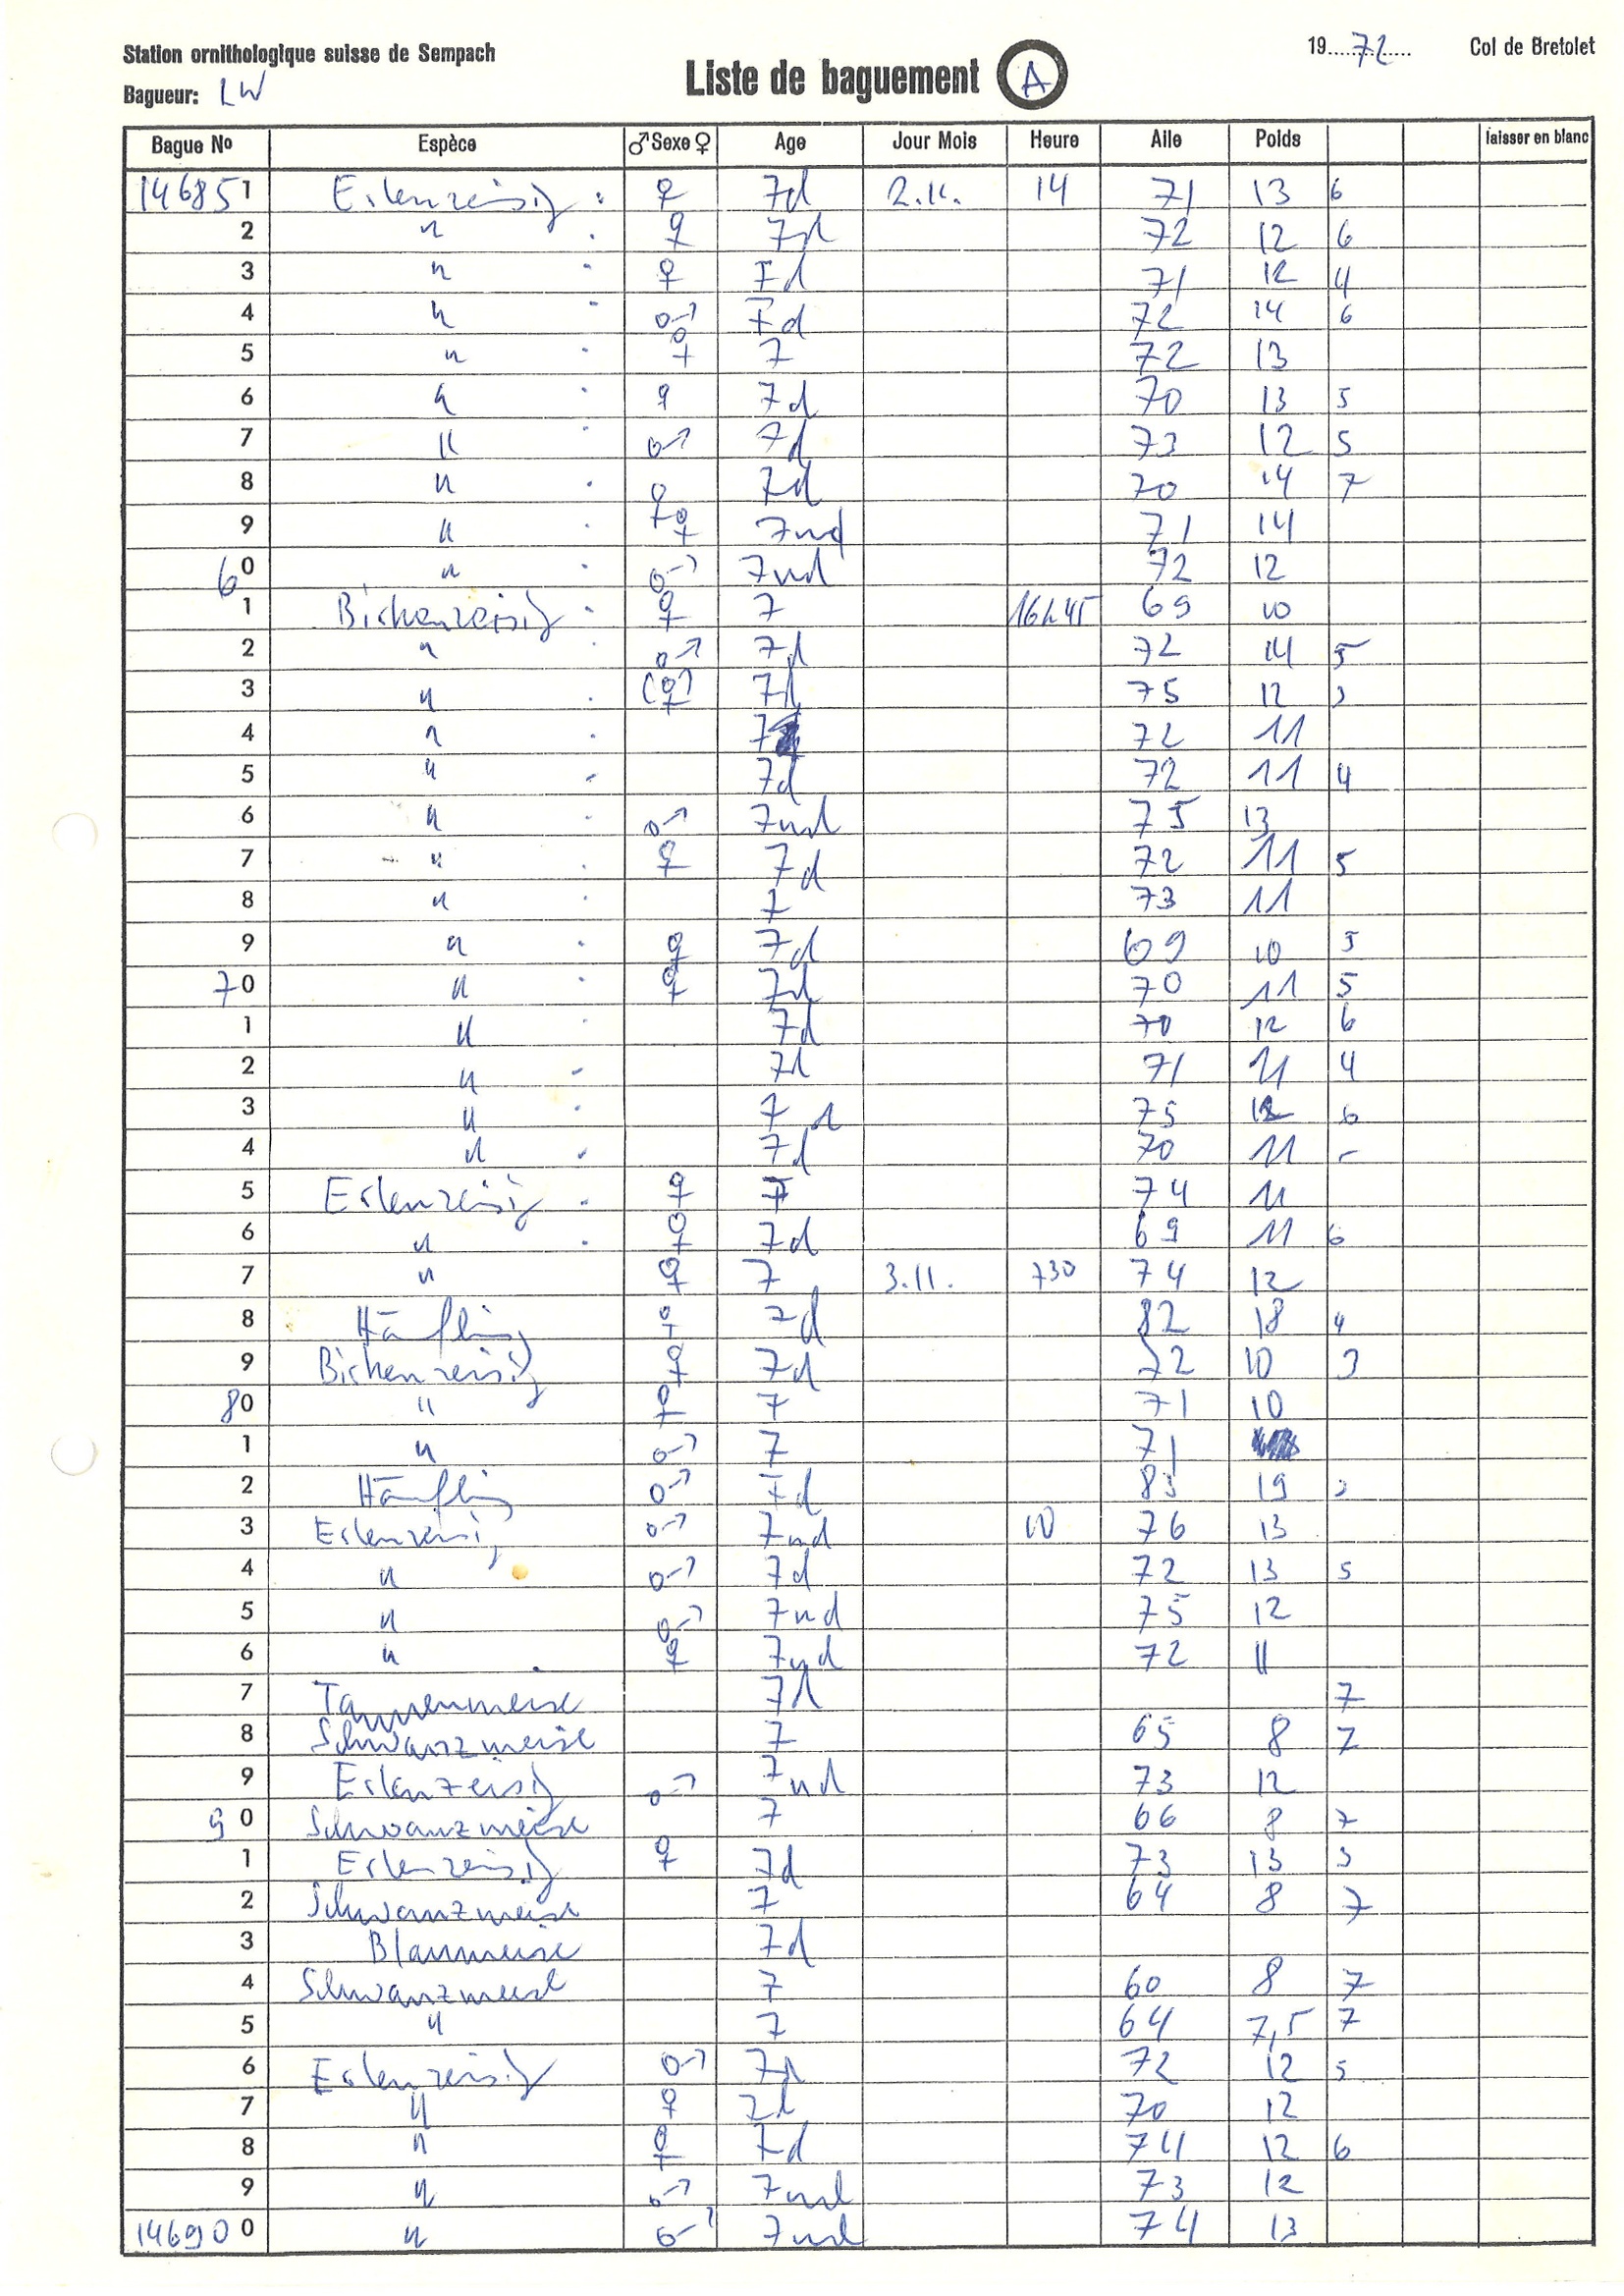 Station ornithologique suisse de Sempach
19 72 Col de Bretolet
Liste de baguement A
Bagueur: LW
Bague No Espèce ♂ Sexe ♀ Age Jour Mois Heure Aile Poids laisser en blanc
146851 Erlenzeisig ♀ 7d 2.11. 14 71 13 6
2 " ♀ 7d 72 12 6
3 " ♀ 7d 71 12 4
4 " ♂ 7d 72 14 6
5 " ♀ 7 72 13
6 " ♀ 7d 70 13 5
7 " ♂ 7d 73 12 5
8 " ♀ 7d 70 14 7
9 " ♀ 7nd 71 14
60 " ♂ 7nd 72 12
1 Birkenzeisig ♀ 7 16h45 69 10
2 " ♂ 7d 72 14 5
3 " (♀) 7d 75 12 3
4 " 7 72 11
5 " 7d 72 11 4
6 " ♂ 7nd 75 13
7 " ♀ 7d 72 11 5
8 " 7 73 11
9 " ♀ 7d 69 10 5
70 " ♀ 7d 70 11 5
1 " 7d 70 12 6
2 " 7d 71 11 4
3 " 7d 75 12 6
4 " 7d 70 11
5 Erlenzeisig ♀ 7 74 11
6 " ♀ 7d 69 11 6
7 " ♀ 7 3.11. 730 74 12
8 Hänfling ♀ 7d 82 18 4
9 Birkenzeisig ♀ 7d 72 10 3
80 " ♀ 7 71 10
1 " ♂ 7 71
2 Hänfling ♂ 7d 83 19 3
3 Erlenzeisig ♂ 7nd 10 76 13
4 " ♂ 7d 72 13 5
5 " ♂ 7nd 75 12
6 " ♀ 7nd 72 11
7 Tannenmeise 7d 7
8 Schwanzmeise 7 65 8 7
9 Erlenzeisig ♂ 7nd 73 12
90 Schwanzmeise 7 66 8 7
1 Erlenzeisig ♀ 7d 73 13 3
2 Schwanzmeise 7 64 8 7
3 Blaumeise 7d
4 Schwanzmeise 7 60 8 7
5 " 7 64 7,5 7
6 Erlenzeisig ♂ 7d 72 12 5
7 " ♀ 7d 70 12
8 " ♀ 7d 74 12 6
9 " ♂ 7nd 73 12
146900 " ♂ 7nd 74 13